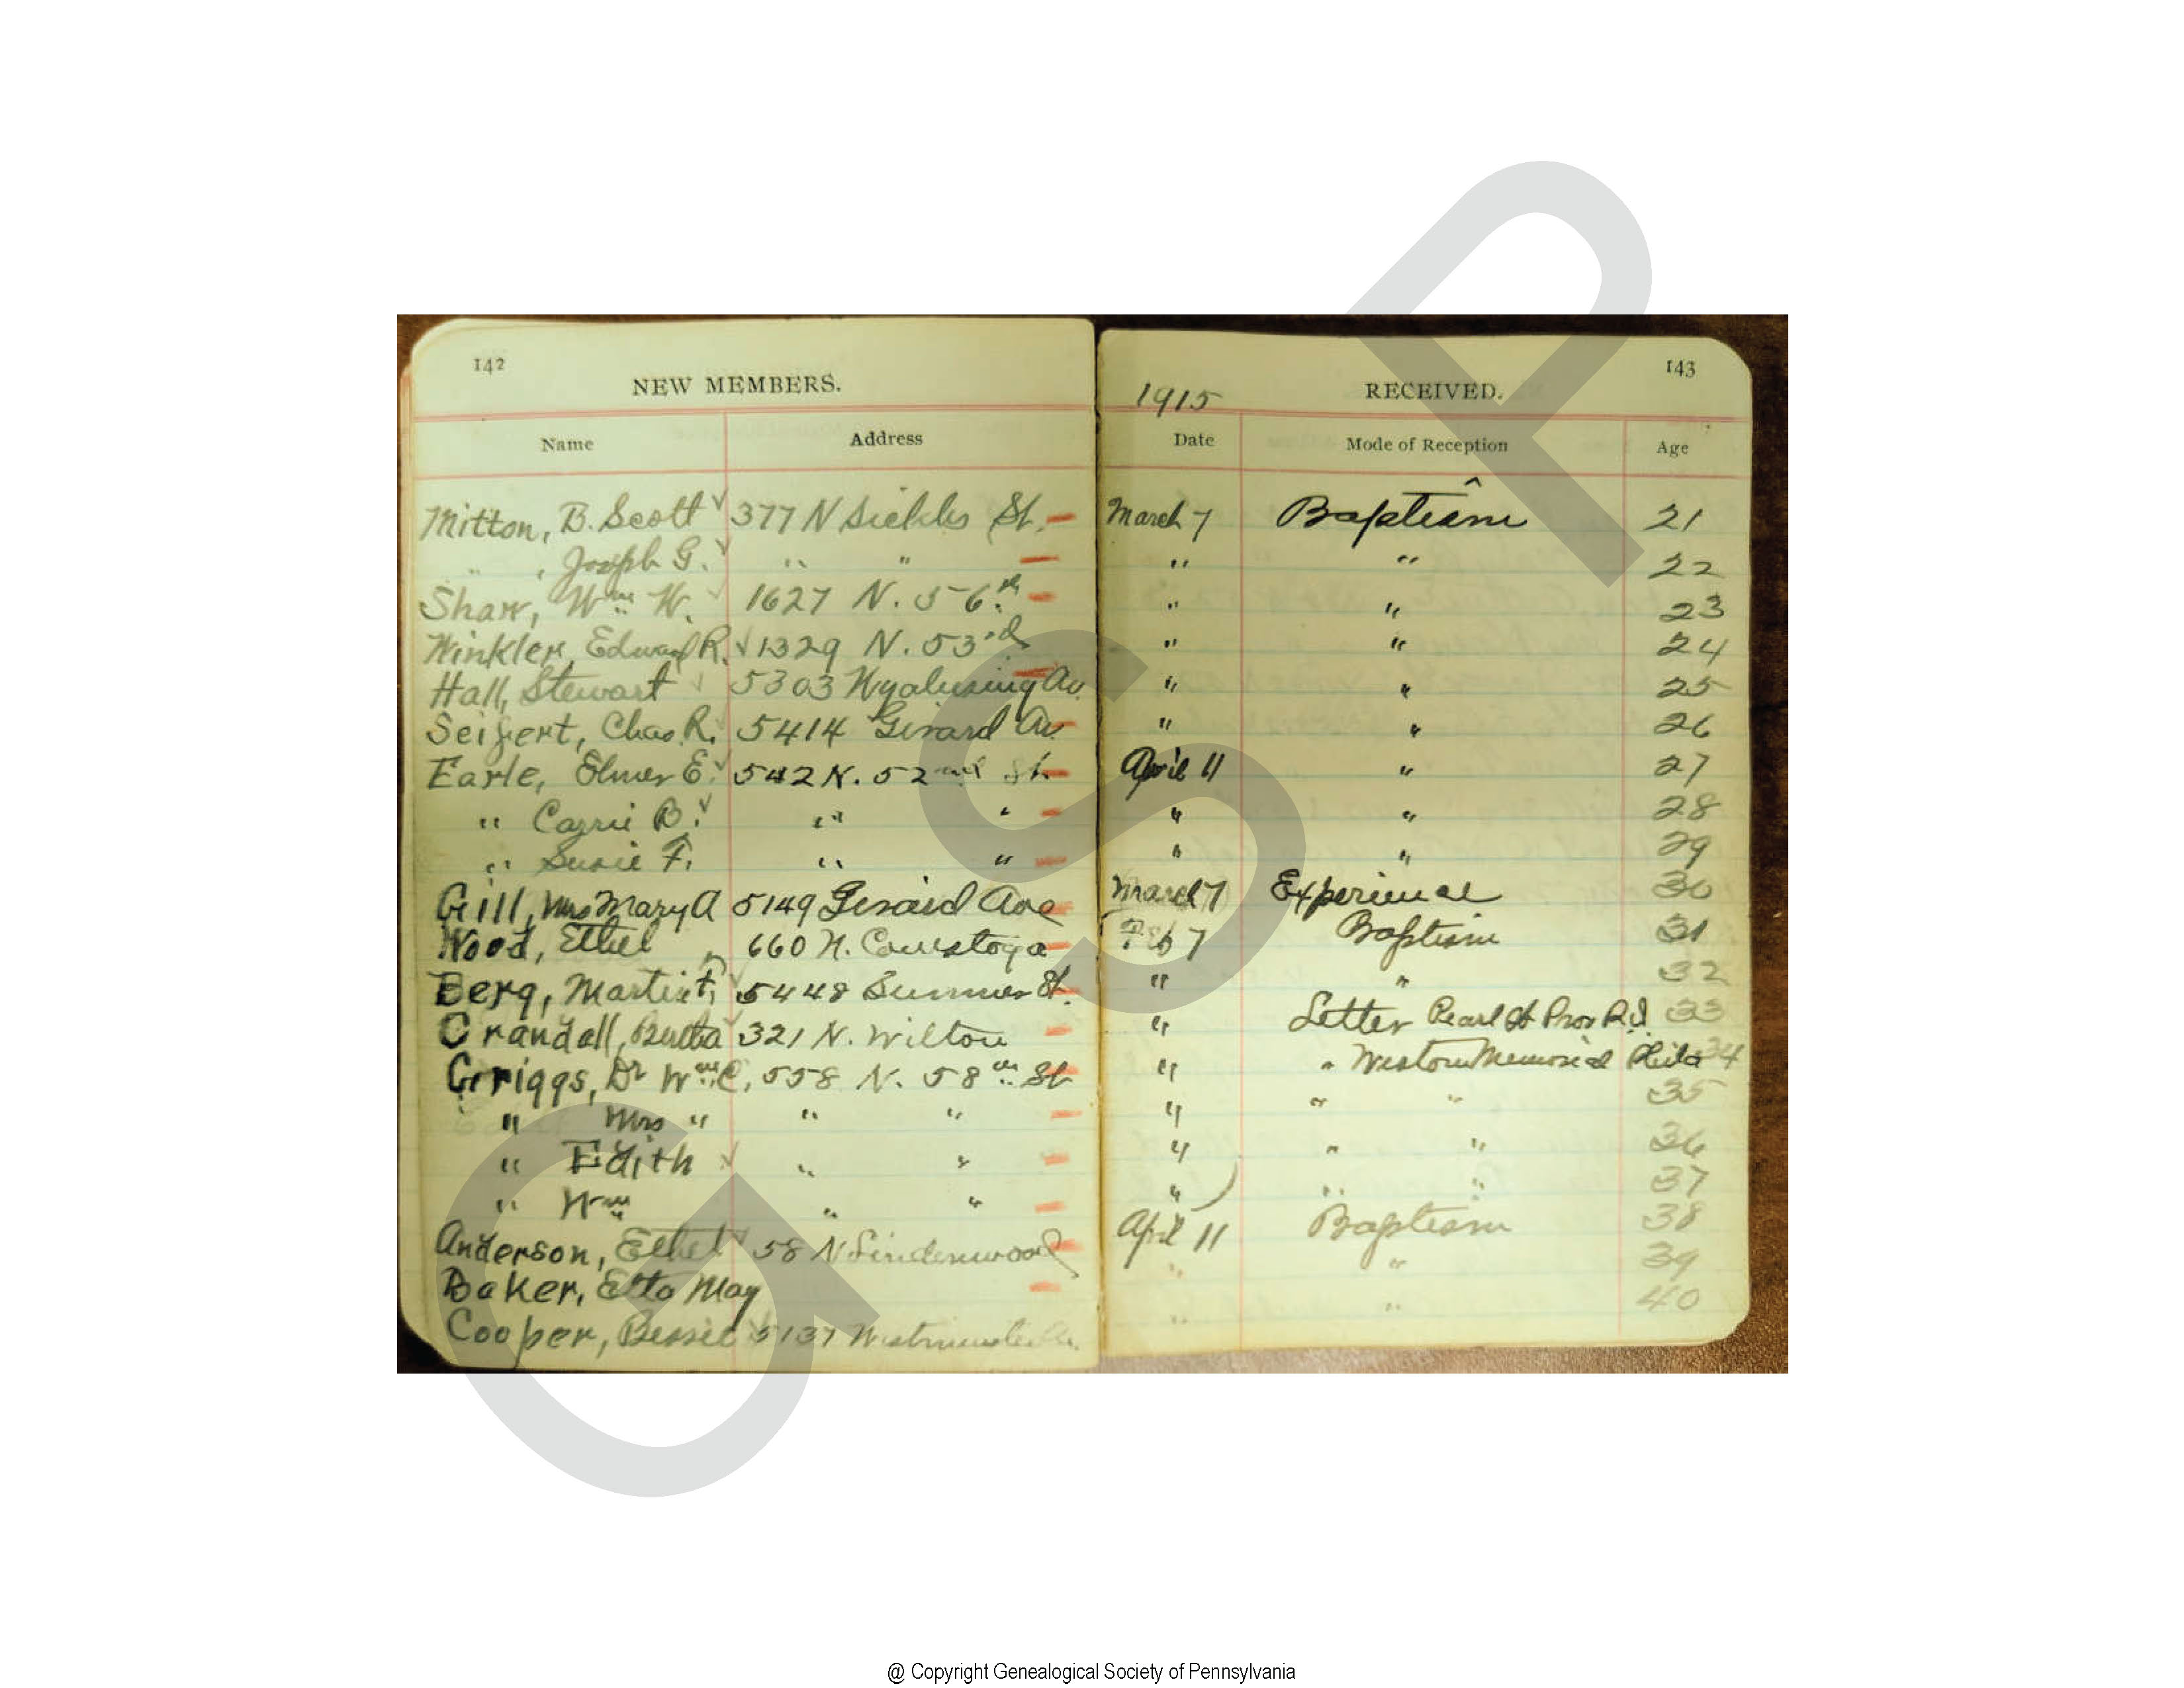 142
NEW MEMBERS.
Name Address
Mitton, B. Scott ✓ 377 N Sickles St. –
" , Joseph G. ✓ " " –
Shaw, Wm W. ✓ 1627 N. 56.th –
Winkler, Edward R. ✓ 1329 N. 53rd
Hall, Stewart ✓ 5303 Wyalusing Av.
Seifert, Chas. R. ✓ 5414 Girard Av –
Earle, Elmer E. ✓ 542 N. 52nd St. –
" Carrie B. ✓ " " –
" Susie F. " " –
Gill, Mrs Mary A 5149 Girard Ave –
Wood, Ethel 660 N. Conestoga –
Berg, Martin F, ✓ 5448 Summer St. –
Crandall, Bertha ✓ 321 N. Wilton –
Griggs, Dr Wm C. 558 N. 58th St
" Mrs " " " –
" Edith ✓ " " –
" Wm " " –
Anderson, Ethel ✓ 58 N Lindenwood –
Baker, Etta May –
Cooper, Bessie ✓ 5137 Westminster Av.
143
1915 RECEIVED.
Date Mode of Reception Age
March 7 Baptism 21
" " 22
" " 23
" " 24
" " 25
" " 26
April 11 " 27
" " 28
" " 29
March 7 Experience 30
Feb 7 Baptism 31
" " 32
" Letter Pearl St Prov R.I. 33
" " Weston Memorial Phila 34
" " " 35
" " " 36
" " " 37
April 11 Baptism 38
" " 39
" " 40
G S P
@ Copyright Genealogical Society of Pennsylvania